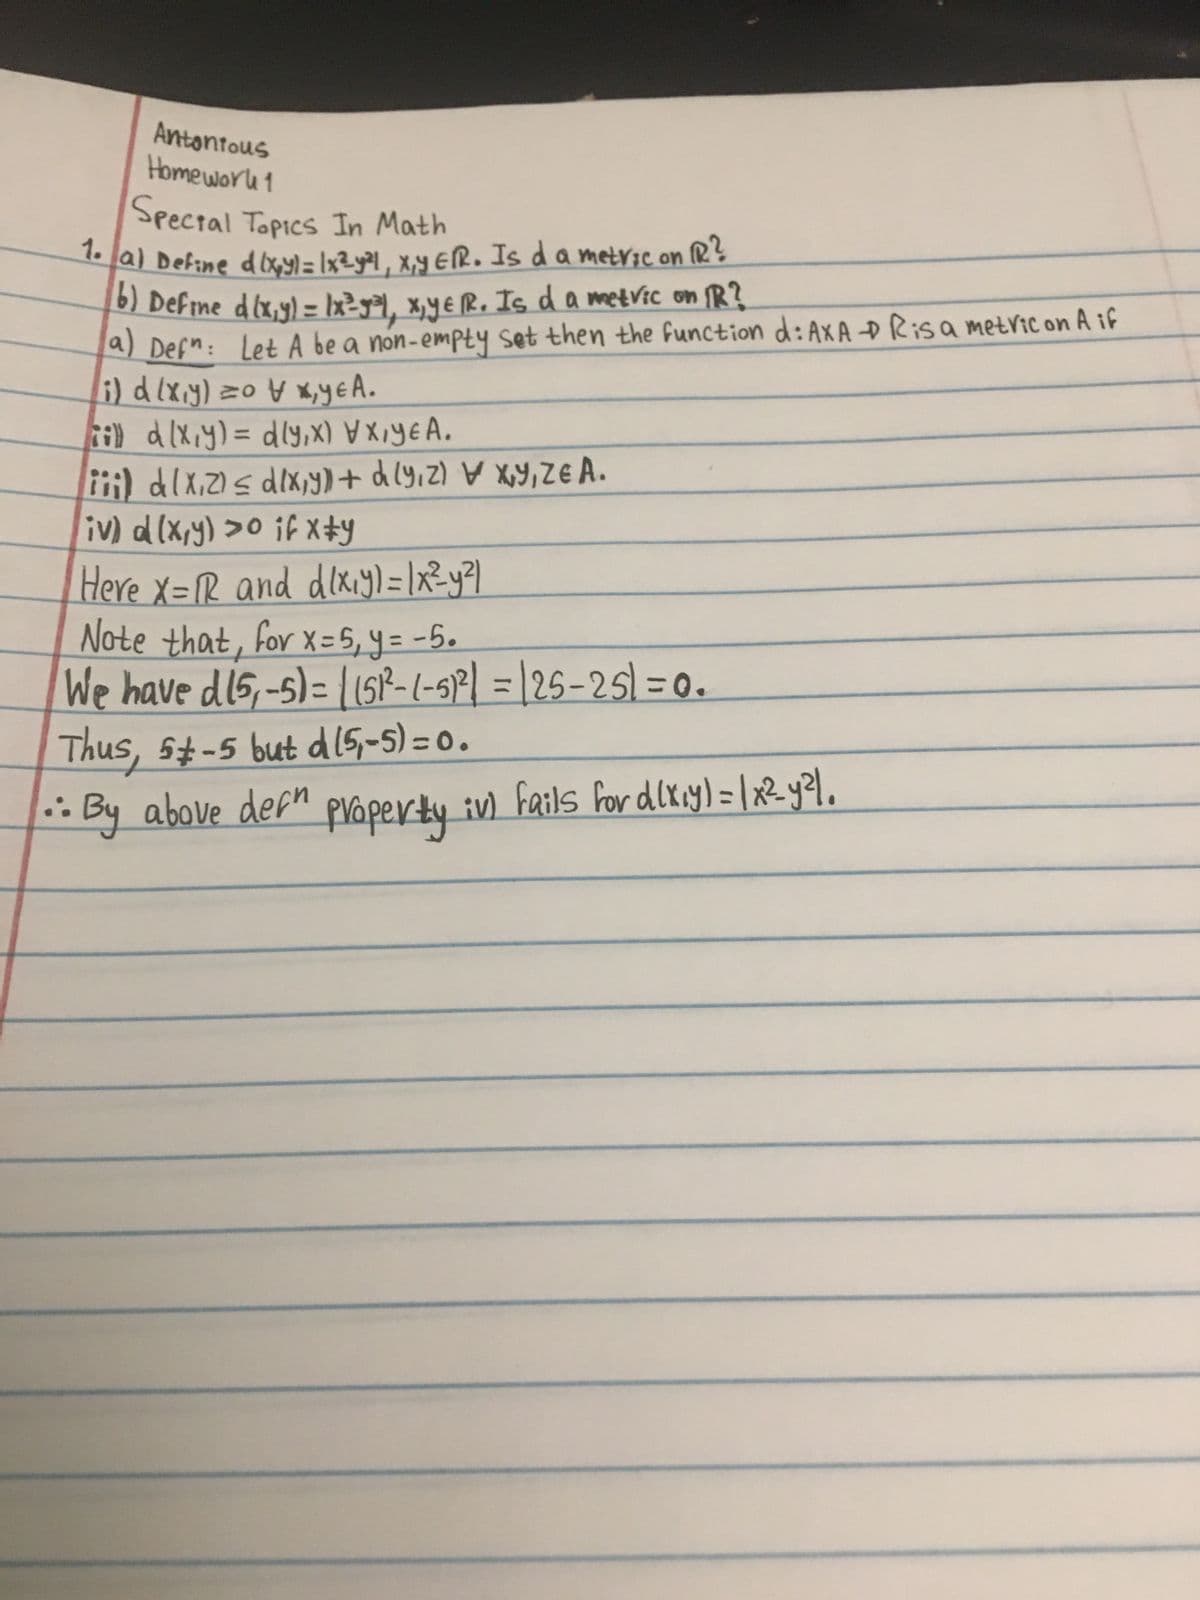 Antonious
Homework 1
Special Topics In Math
1. a) Define d(x,y)=|x²-y²|, x,y∈ℝ. Is d a metric on ℝ?
b) Define d(x,y) = |x³-y³|, x,y∈ℝ. Is d a metric on ℝ?
a) Defⁿ: Let A be a non-empty set then the function d: AXA → R is a metric on A if
i) d(x,y) ≥0 ∀ x,y∈A.
ii) d(x,y) = d(y,x) ∀x,y∈A.
iii) d(x,z) ≤ d(x,y) + d(y,z) ∀ x,y,z∈A.
iv) d(x,y) >0 if x≠y
Here X=ℝ and d(x,y)=|x²-y²|
Note that, for x=5, y= -5.
We have d(5,-5)= |(5)²-(-5)²| = |25-25| = 0.
Thus, 5≠-5 but d(5,-5) = 0.
∴ By above defⁿ property iv) fails for d(x,y) = |x²-y²|.